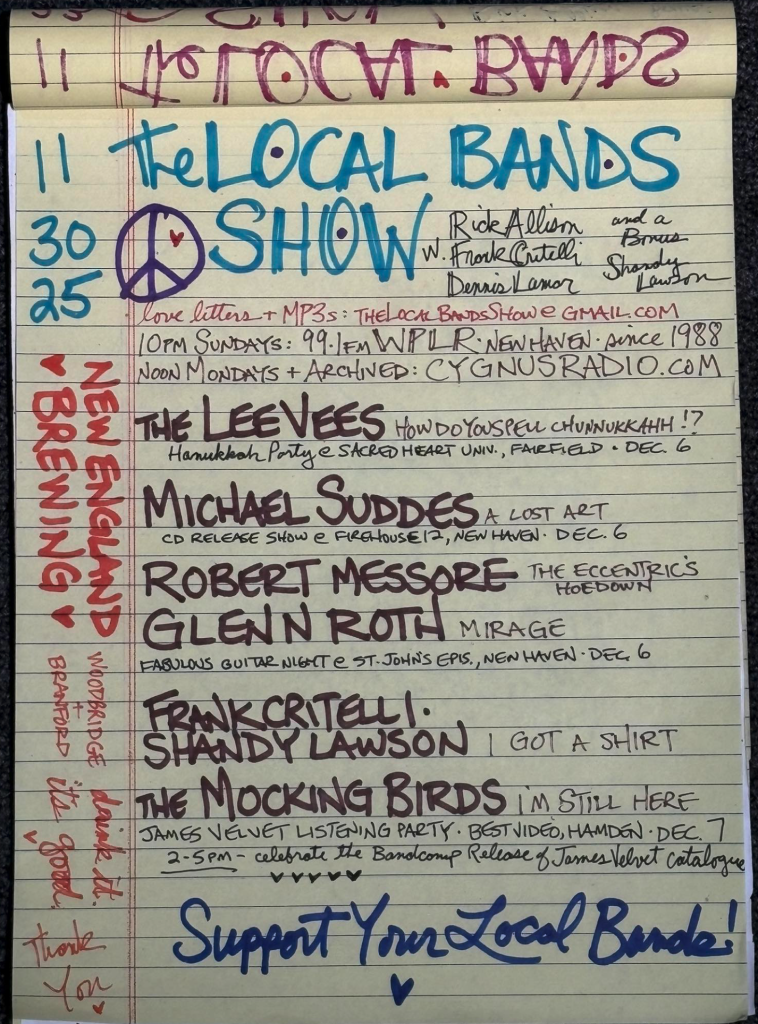 11 The LOCAL BANDS
11 The LOCAL BANDS
30 SHOW
25
Rick Allison
W. Frank Critelli
Dennis Lamar
and a
Bonus
Shandy
Lawson
love letters + MP3s: THELOCALBANDSSHOW@GMAIL.COM
10PM SUNDAYS: 99.1FM WPLR · NEW HAVEN · since 1988
NOON MONDAYS + ARCHIVED: CYGNUSRADIO.COM
THE LEEVEES HOW DO YOU SPELL CHUNNUKKAHH !?
Hanukkah Party @ SACRED HEART UNIV., FAIRFIELD · DEC. 6
MICHAEL SUDDES A LOST ART
CD RELEASE SHOW @ FIREHOUSE 12, NEW HAVEN · DEC. 6
ROBERT MESSORE THE ECCENTRIC'S
HOEDOWN
GLENN ROTH MIRAGE
FABULOUS GUITAR NIGHT @ ST. JOHN'S EPIS., NEW HAVEN · DEC. 6
FRANK CRITELLI ·
SHANDY LAWSON I GOT A SHIRT
THE MOCKING BIRDS I'M STILL HERE
JAMES VELVET LISTENING PARTY · BEST VIDEO, HAMDEN · DEC. 7
2-5PM - celebrate the Bandcamp Release of James Velvet catalogue
Support Your Local Bands!
NEW ENGLAND
BREWING
WOODBRIDGE
+
BRANFORD
drink it.
it's good.
Thank
You